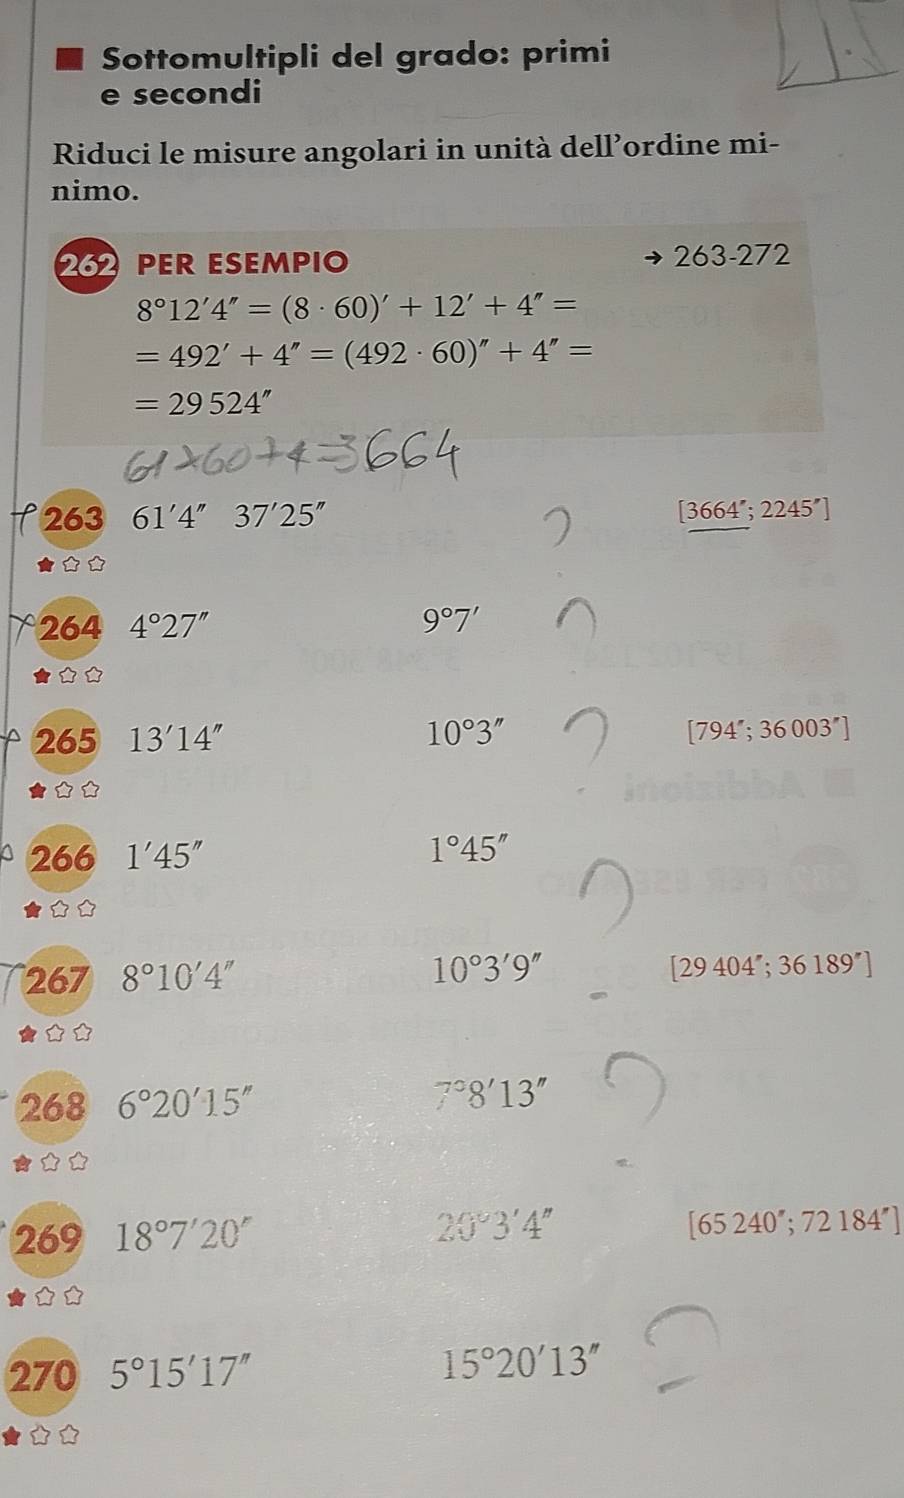 Sottomultipli del grado: primi
e secondi
Riduci le misure angolari in unità dell'ordine mi-
nimo.
262 PER ESEMPIO → 263-272
8°12′4″ = (8 · 60)′ + 12′ + 4″ =
= 492′ + 4″ = (492 · 60)″ + 4″ =
= 29 524″
61×60+4=3664
263 61′4″ 37′25″ [3664″; 2245″]
264 4°27″ 9°7′
265 13′14″ 10°3″ [794″; 36 003″]
266 1′45″ 1°45″
267 8°10′4″ 10°3′9″ [29 404″; 36 189″]
268 6°20′15″ 7°8′13″
269 18°7′20″ 20°3′4″ [65 240″; 72 184″]
270 5°15′17″ 15°20′13″